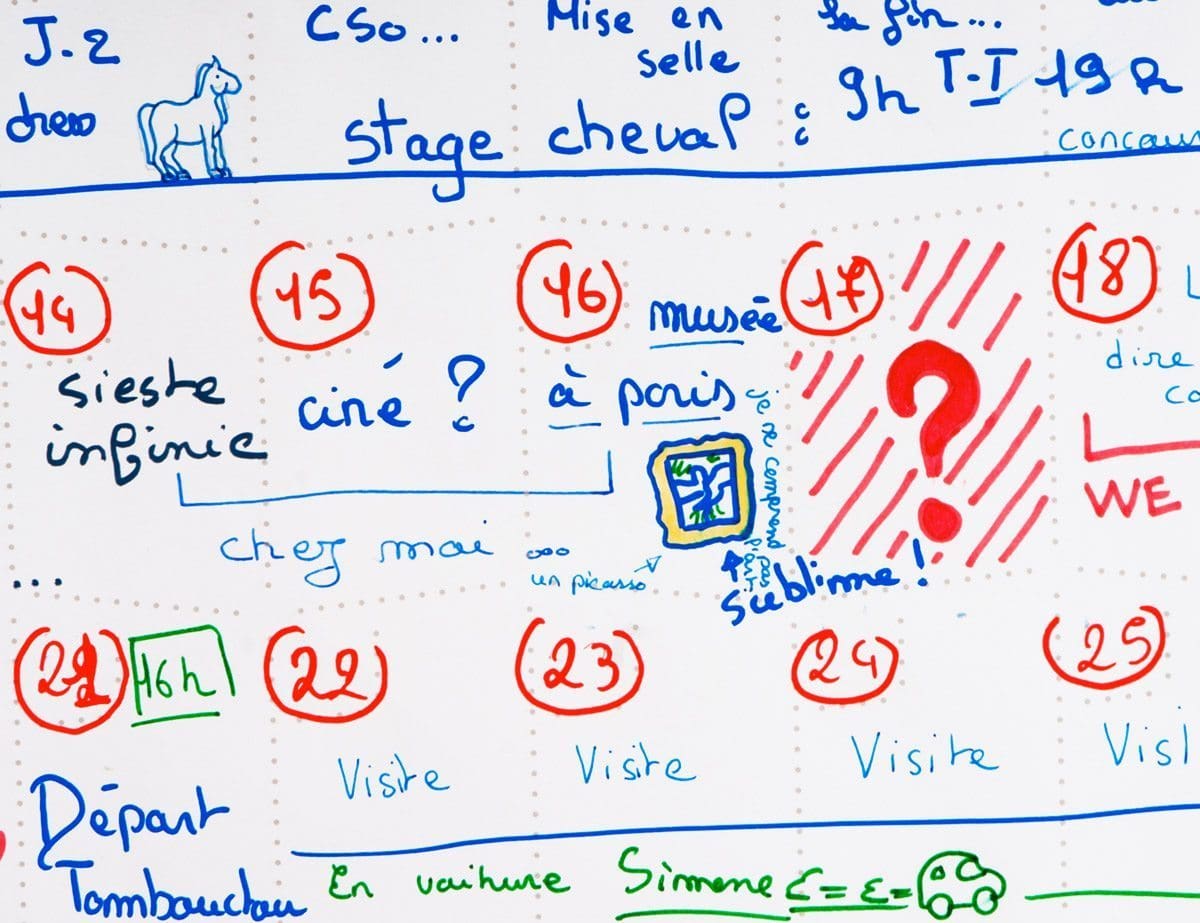 J-2
CSO...
Mise en
selle
la fin...
stage cheval : 9h
concours
14
15
16
17
18
musée
sieste
infinie
ciné ?
à paris
je ne comprend pas
dire
WE
chez moi ...
un picasso
sublime !
...
21
16h
22
23
24
25
Visite
Visite
Visite
Visi
Départ
Tombouctou
En voiture Simone